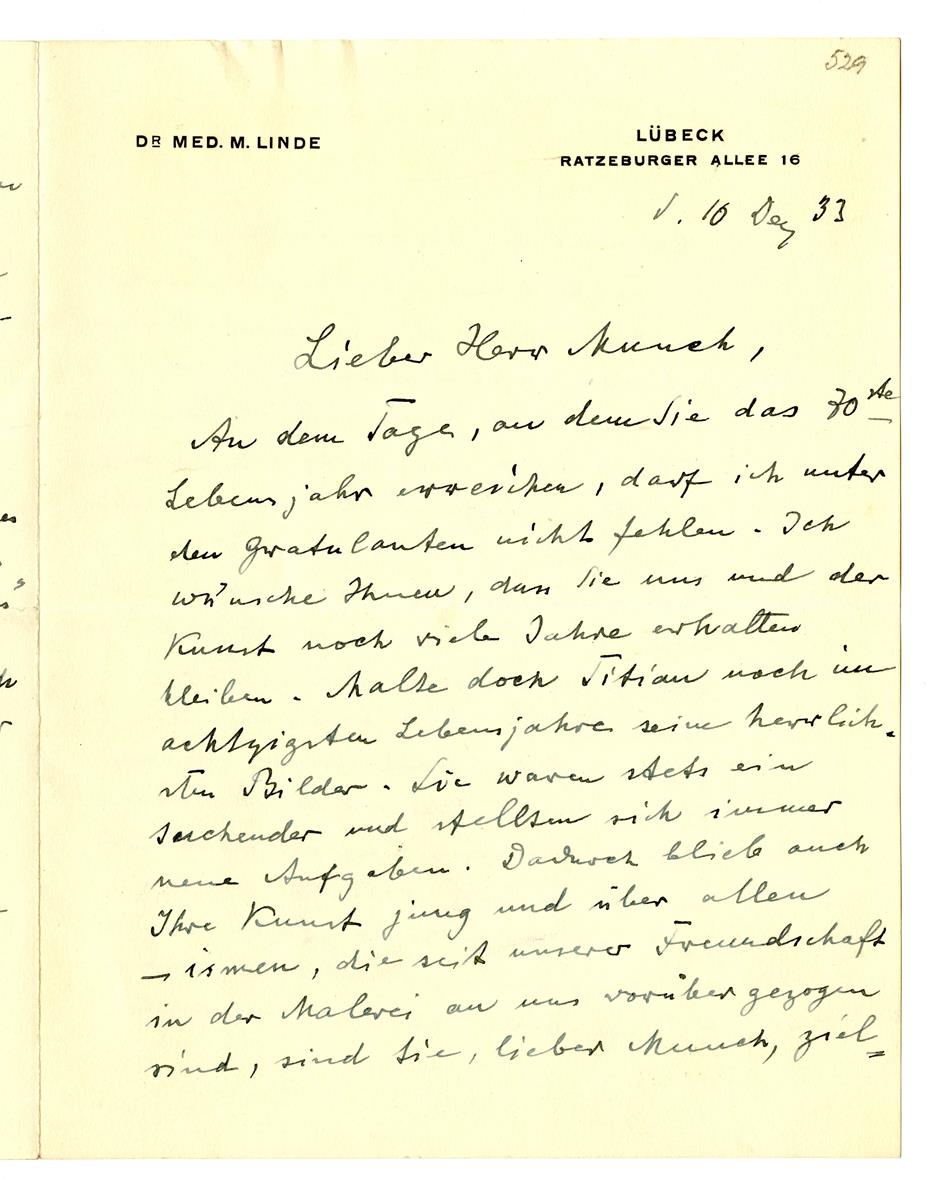 529
DR MED. M. LINDE
LÜBECK
RATZEBURGER ALLEE 16
d. 10 Dez 33
Lieber Herr Munch,
An dem Tage, an dem Sie das 70ste
Lebensjahr erreichen, darf ich unter
den Gratulanten nicht fehlen. Ich
wünsche Ihnen, dass Sie uns und der
Kunst noch viele Jahre erhalten
bleiben. Malte doch Titian noch im
achtzigsten Lebensjahre seine herrlich-
sten Bilder. Sie waren stets ein
Suchender und stellten sich immer
neue Aufgaben. Dadurch blieb auch
Ihre Kunst jung und über allen
– ismen, die seit unserer Freundschaft
in der Malerei an uns vorüber gezogen
sind, sind Sie, lieber Munch, ziel=